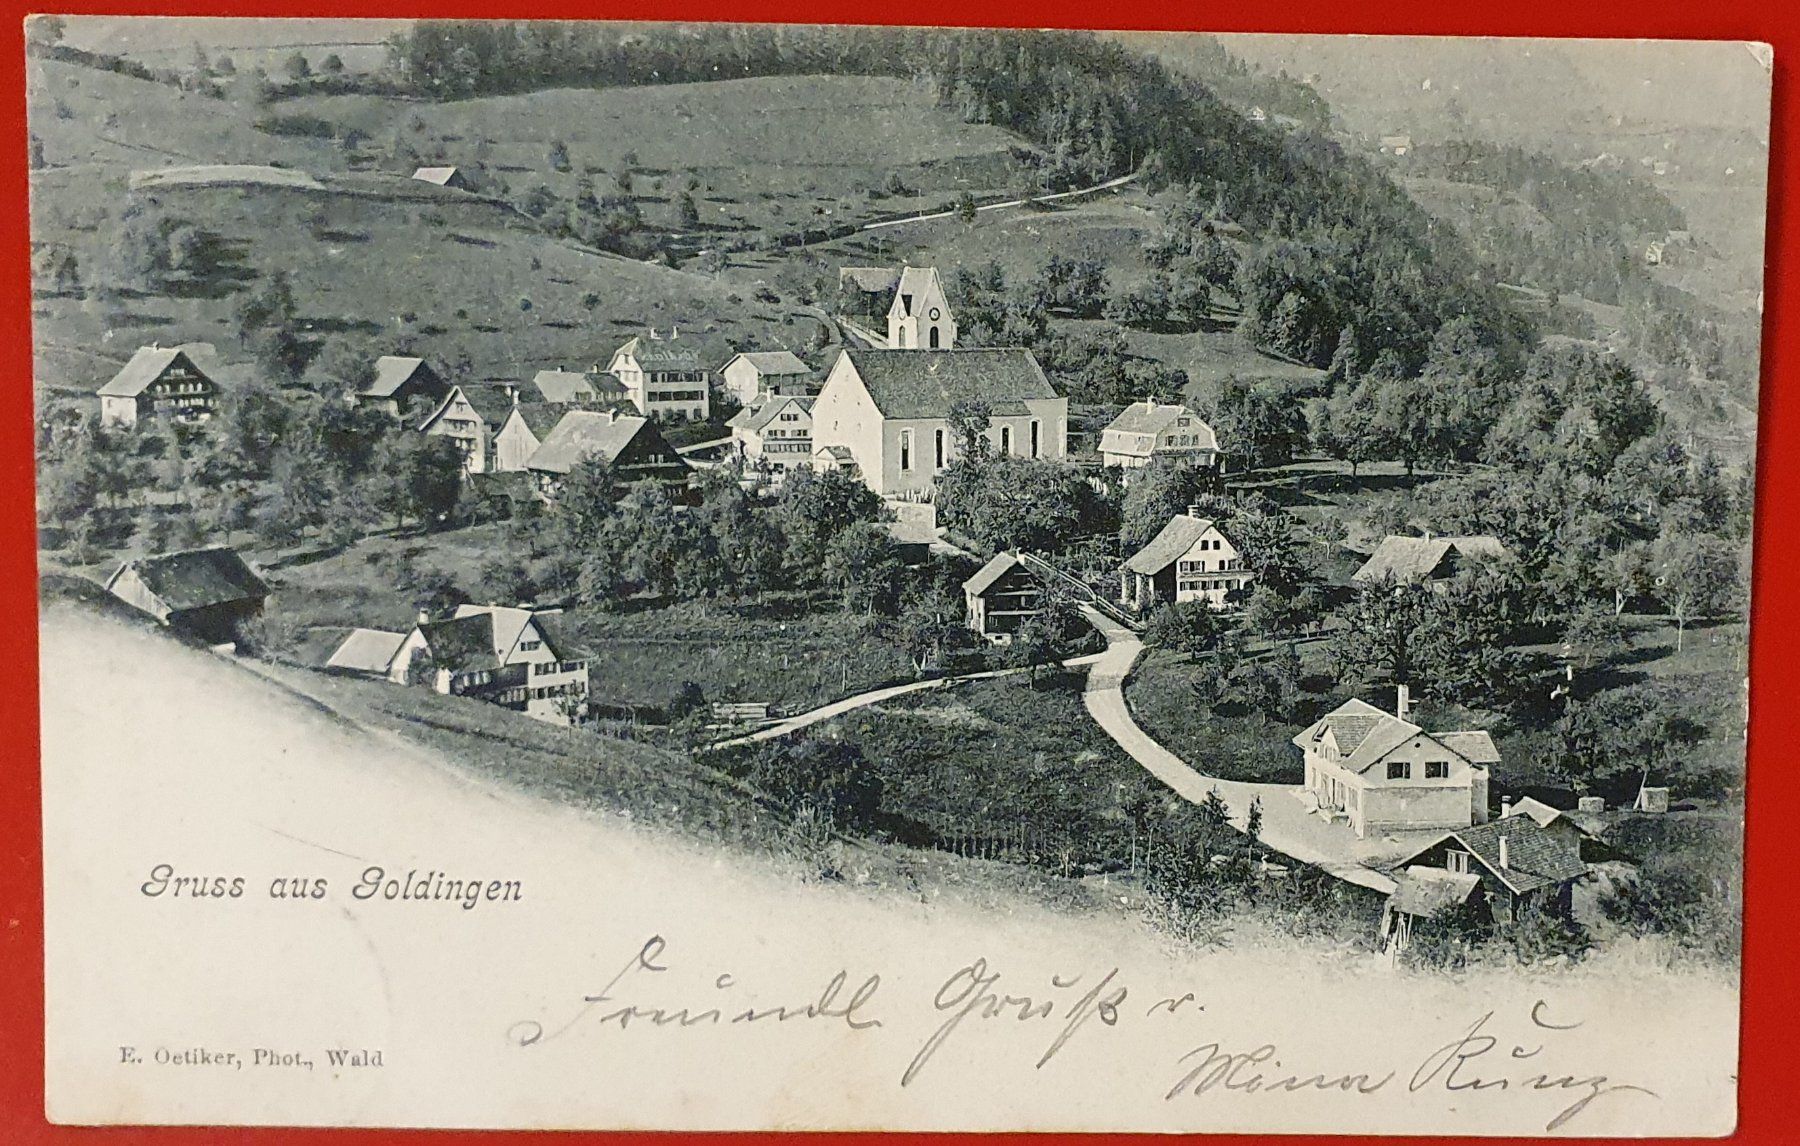 Gruss aus Goldingen
Freundl. Gruß v.
Mina Kunz
E. Oetiker, Phot., Wald